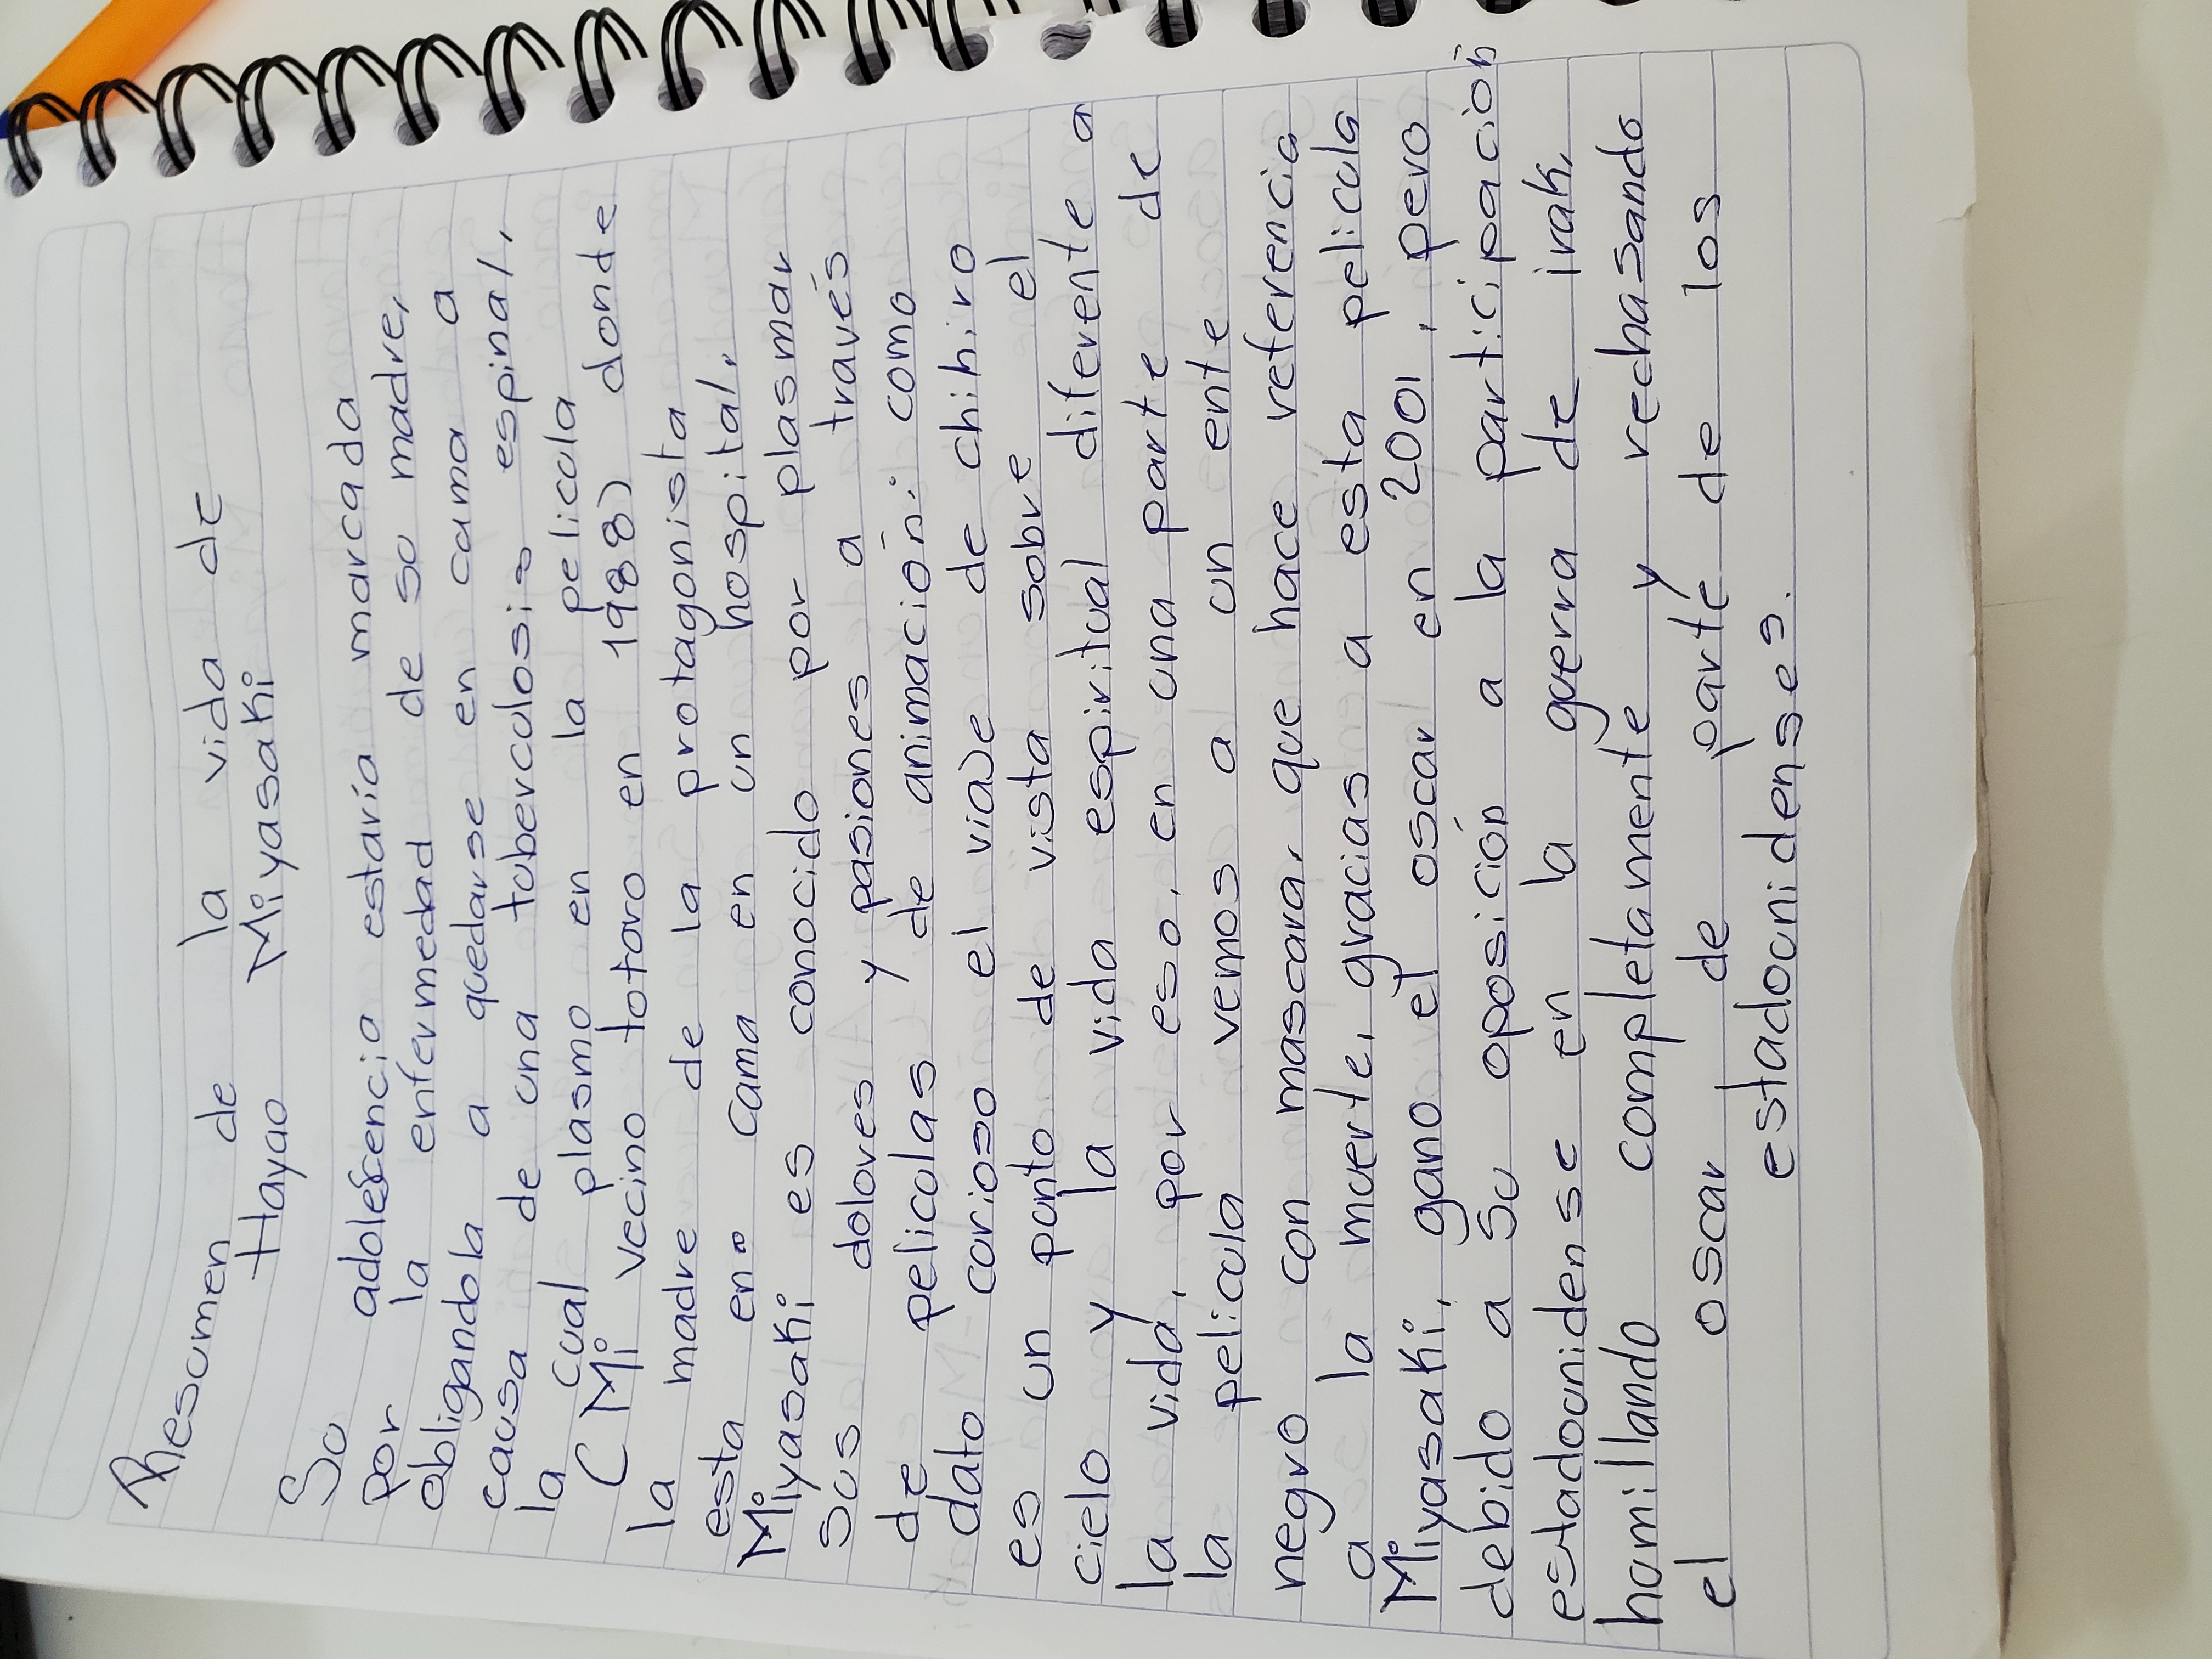 Resumen de la vida de
Hayao Miyasaki
Su adolescencia estaría marcada
por la enfermedad de su madre,
obligandola a quedarse en cama a
causa de una tuberculosis espinal,
la cual plasmo en la pelicula
(Mi vecino totoro en 1988) donde
la madre de la protagonista
esta en cama en un hospital.
Miyasaki es conocido por plasmar
sus dolores y pasiones a través
de peliculas de animación: como
dato curioso el viaje de chihiro
es un punto de vista sobre el
cielo y la vida espiritual diferente a
la vida, por eso, en una parte de
la pelicula vemos a un ente
negro con mascara, que hace referencia
a la muerte, gracias a esta pelicula
Miyasaki, gano el oscar en 2001, pero
debido a su oposición a la participación
estadounidense en la guerra de irak,
humillando completamente y rechasando
el oscar de parte de los
estadounidenses.